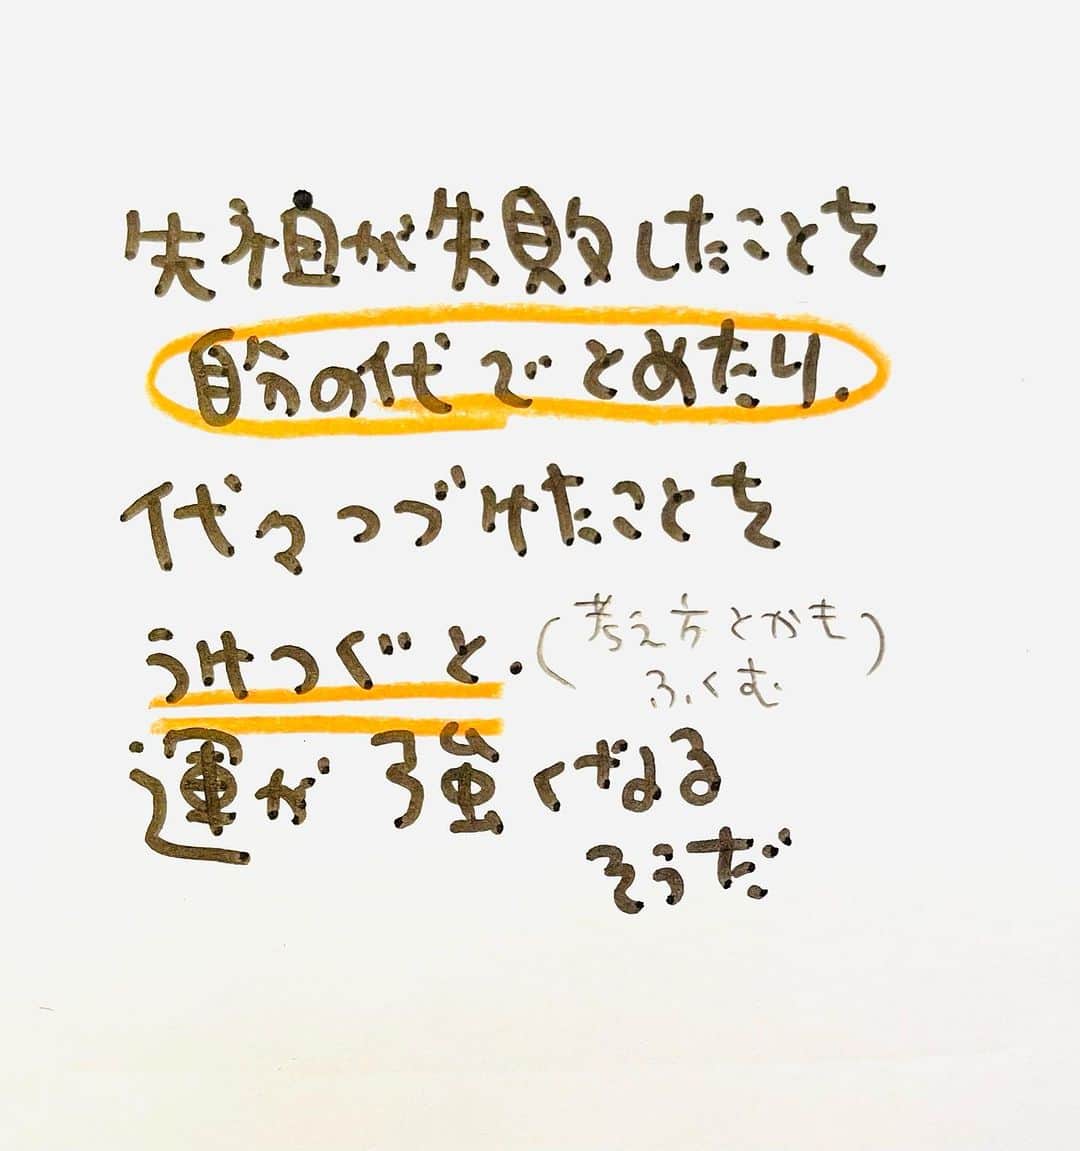 先祖が失敗したことを
自分の代でとめたり.
代々つづけたことを
うけつぐと.
(考え方とかも
ふくむ)
運が強くなる
そうだ